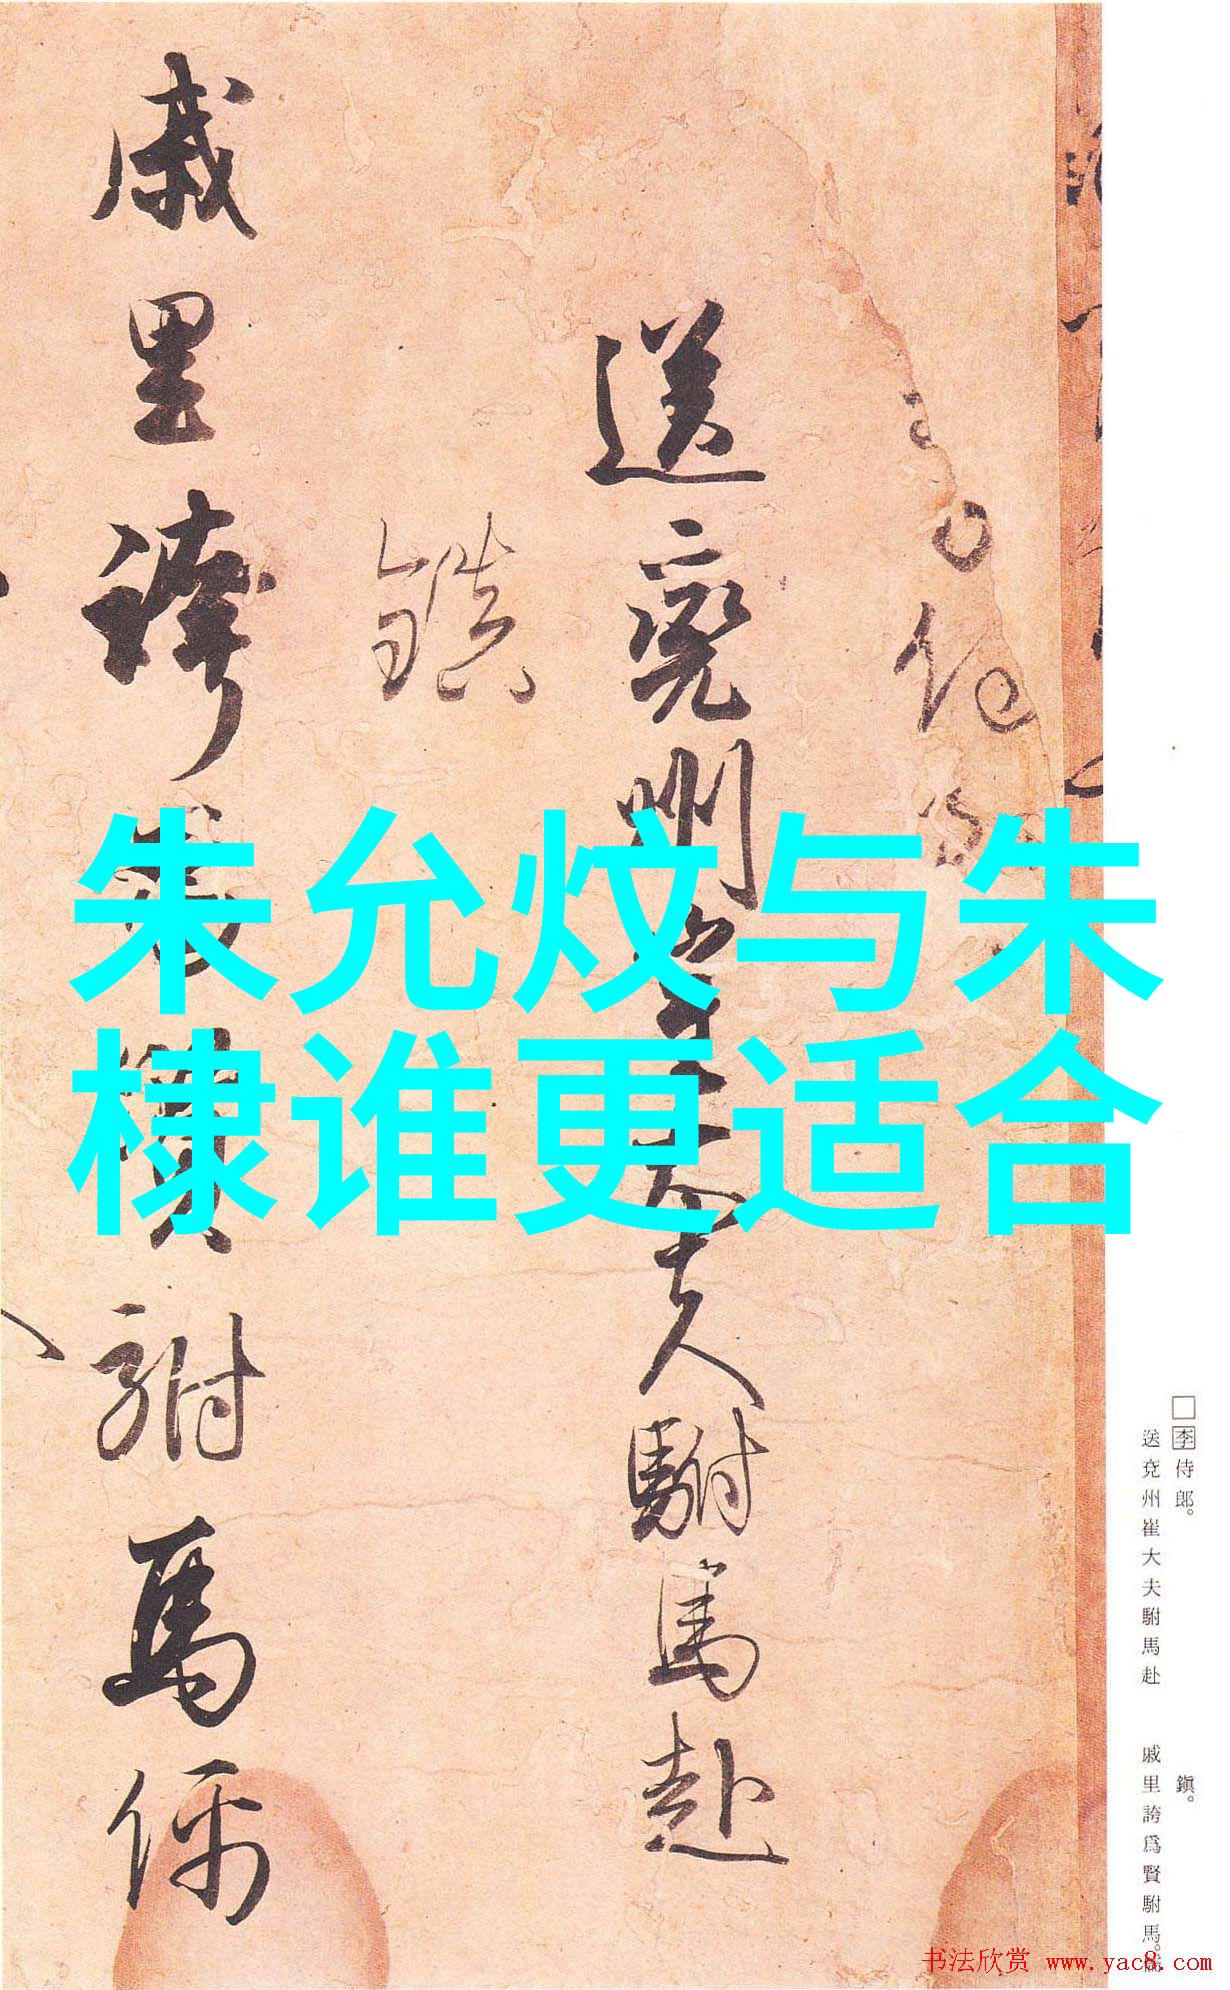 朱允炆与朱
棣谁更适合
送兖州崔大夫駙馬赴
鎮
戚里誇為賢駙馬儒
□李侍郎。
送兗州崔大夫駙馬赴
鎮。
戚里誇爲賢駙馬。儒
书法欣赏 www.yac8.com